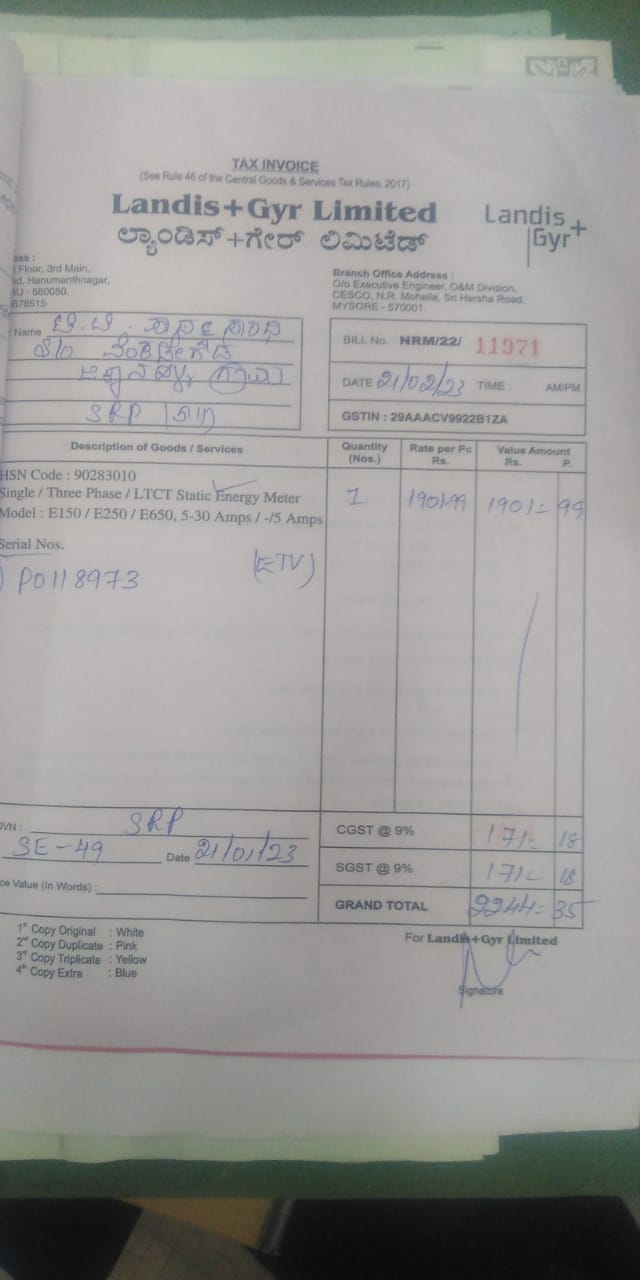 TAX INVOICE
(See Rule 46 of the Central Goods & Services Tax Rules, 2017)
Landis+Gyr Limited
ಲ್ಯಾಂಡಿಸ್+ಗೇರ್ ಲಿಮಿಟೆಡ್
Landis+
Gyr
Floor, 3rd Main,
Hanumanthnagar,
560050.
678515
Branch Office Address :
O/o Executive Engineer, O&M Division,
CESCO, N.R. Mohalla, Sri Harsha Road,
MYSORE - 570001.
Name
SRP
BILL No. NRM/22/ 11971
DATE 21/02/23 TIME : AM/PM
GSTIN : 29AAACV9922B1ZA
Description of Goods / Services
Quantity (Nos.)
Rate per Pc Rs.
Value Amount Rs. P.
HSN Code : 90283010
Single / Three Phase / LTCT Static Energy Meter
Model : E150 / E250 / E650, 5-30 Amps / -/5 Amps
1 1901-99 1901= 99
Serial Nos.
P0118973 (ETV)
SRP
SE-49 Date 21/01/23
Value (In Words) :
CGST @ 9% 171= 18
SGST @ 9% 171= 18
GRAND TOTAL 2244= 35
1st Copy Original : White
2nd Copy Duplicate : Pink
3rd Copy Triplicate : Yellow
4th Copy Extra : Blue
For Landis+Gyr Limited
Signature